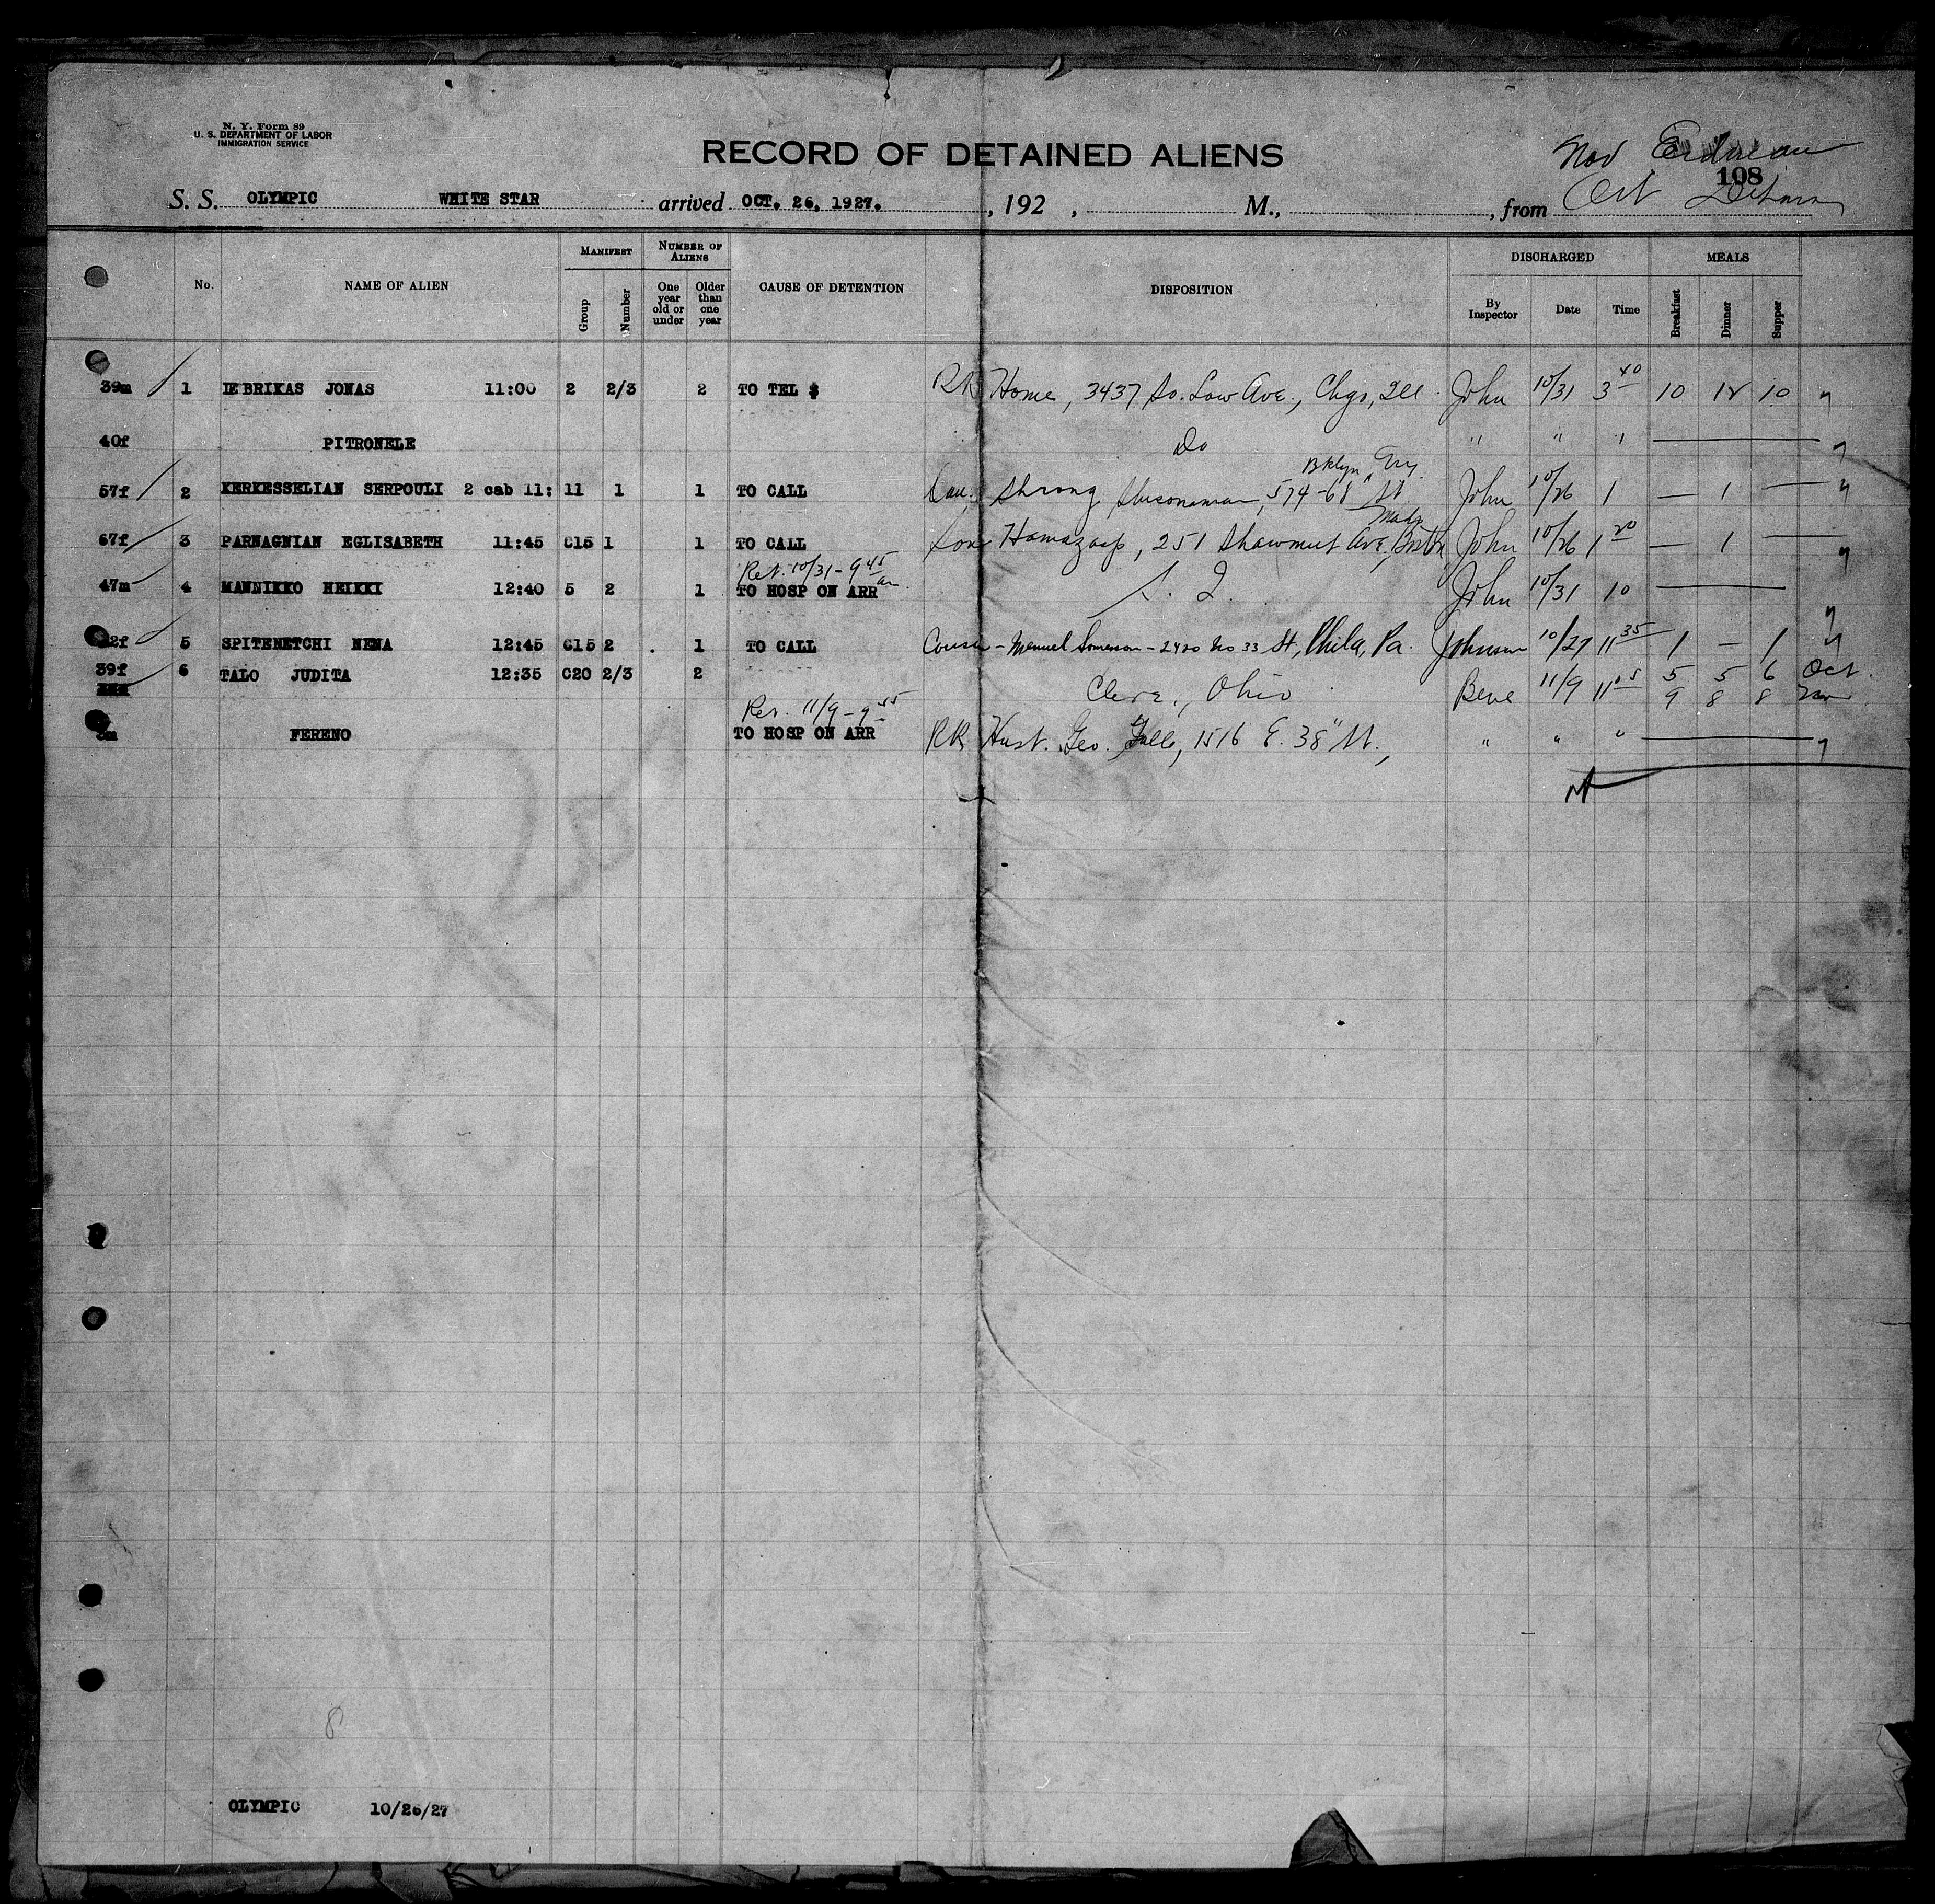 N. Y. Form 89
U. S. DEPARTMENT OF LABOR
IMMIGRATION SERVICE
RECORD OF DETAINED ALIENS
Nov
108
Oct
S. S. OLYMPIC WHITE STAR arrived OCT. 26, 1927. , 192 , M., , from
No. NAME OF ALIEN MANIFEST Group Number NUMBER OF ALIENS One year old or under Older than one year CAUSE OF DETENTION DISPOSITION DISCHARGED By Inspector Date Time MEALS Breakfast Dinner Supper
39m 1 IEBRIKAS JONAS 11:00 2 2/3 2 TO TEL $ RR Home, 3437 So. Low Ave., Chgo, Ill. John 10/31 3 40 10 12 10 "
40f PITRONELE Do " " " "
Bklyn, NY
57f 2 KERKESSELIAN SERPOULI 2 cab 11: 11 1 1 TO CALL 574-68" St. John 10/26 1 — 1 — "
Mass
67f 3 PARNAGNIAN EGLISABETH 11:45 C15 1 1 TO CALL Son Hamazasp, 251 Shawmut Ave, Bstn John 10/26 1 20 — 1 — "
Ret. 10/31 - 9 45 am.
47m 4 MANNIKKO HEIKKI 12:40 5 2 1 TO HOSP ON ARR S. I. John 10/31 10 "
2f 5 SPITENETCHI NENA 12:45 C15 2 1 TO CALL Cousin - Manuel - 2420 No 33 St, Phila, Pa. Johnson 10/27 11 35 1 — 1 "
39f 6 TALO JUDITA 12:35 C20 2/3 2 Cleve., Ohio Beve 11/9 11 05 5 5 6 Oct
9 8 8 Nov
Ret. 11/9 - 9 55
m FERENO TO HOSP ON ARR RR Husb. Geo. 1516 E. 38" St., " " " "
8
OLYMPIC 10/26/27